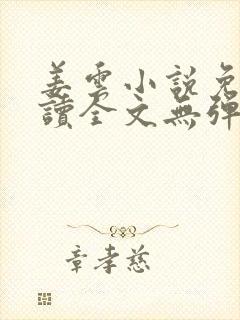 姜雲小說免
讀全文無彈
章孝慈